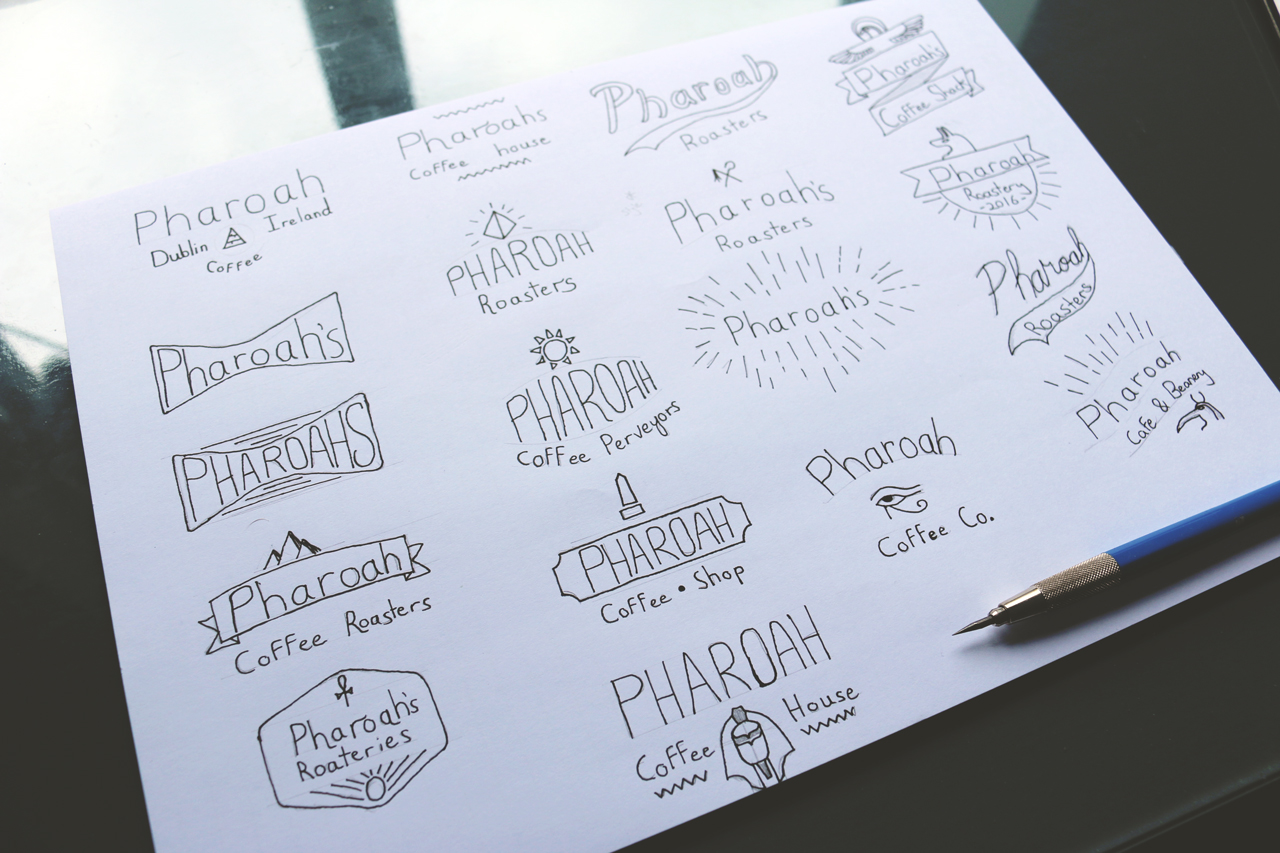 Pharoah
Dublin Ireland
Coffee
Pharoah's
PHAROAHS
Pharoah
Coffee Roasters
Pharoah's
Roateries
Pharoahs
Coffee house
PHAROAH
Roasters
PHAROAH
Coffee Perveyors
PHAROAH
Coffee • Shop
PHAROAH
Coffee House
Pharoah
Roasters
Pharoah's
Roasters
Pharoah's
Pharoah
Coffee Co.
Pharoah's
Coffee Shack
Pharoah
Roastery
-2016-
Pharoah
Roasters
Pharoah
Cafe & Beanery